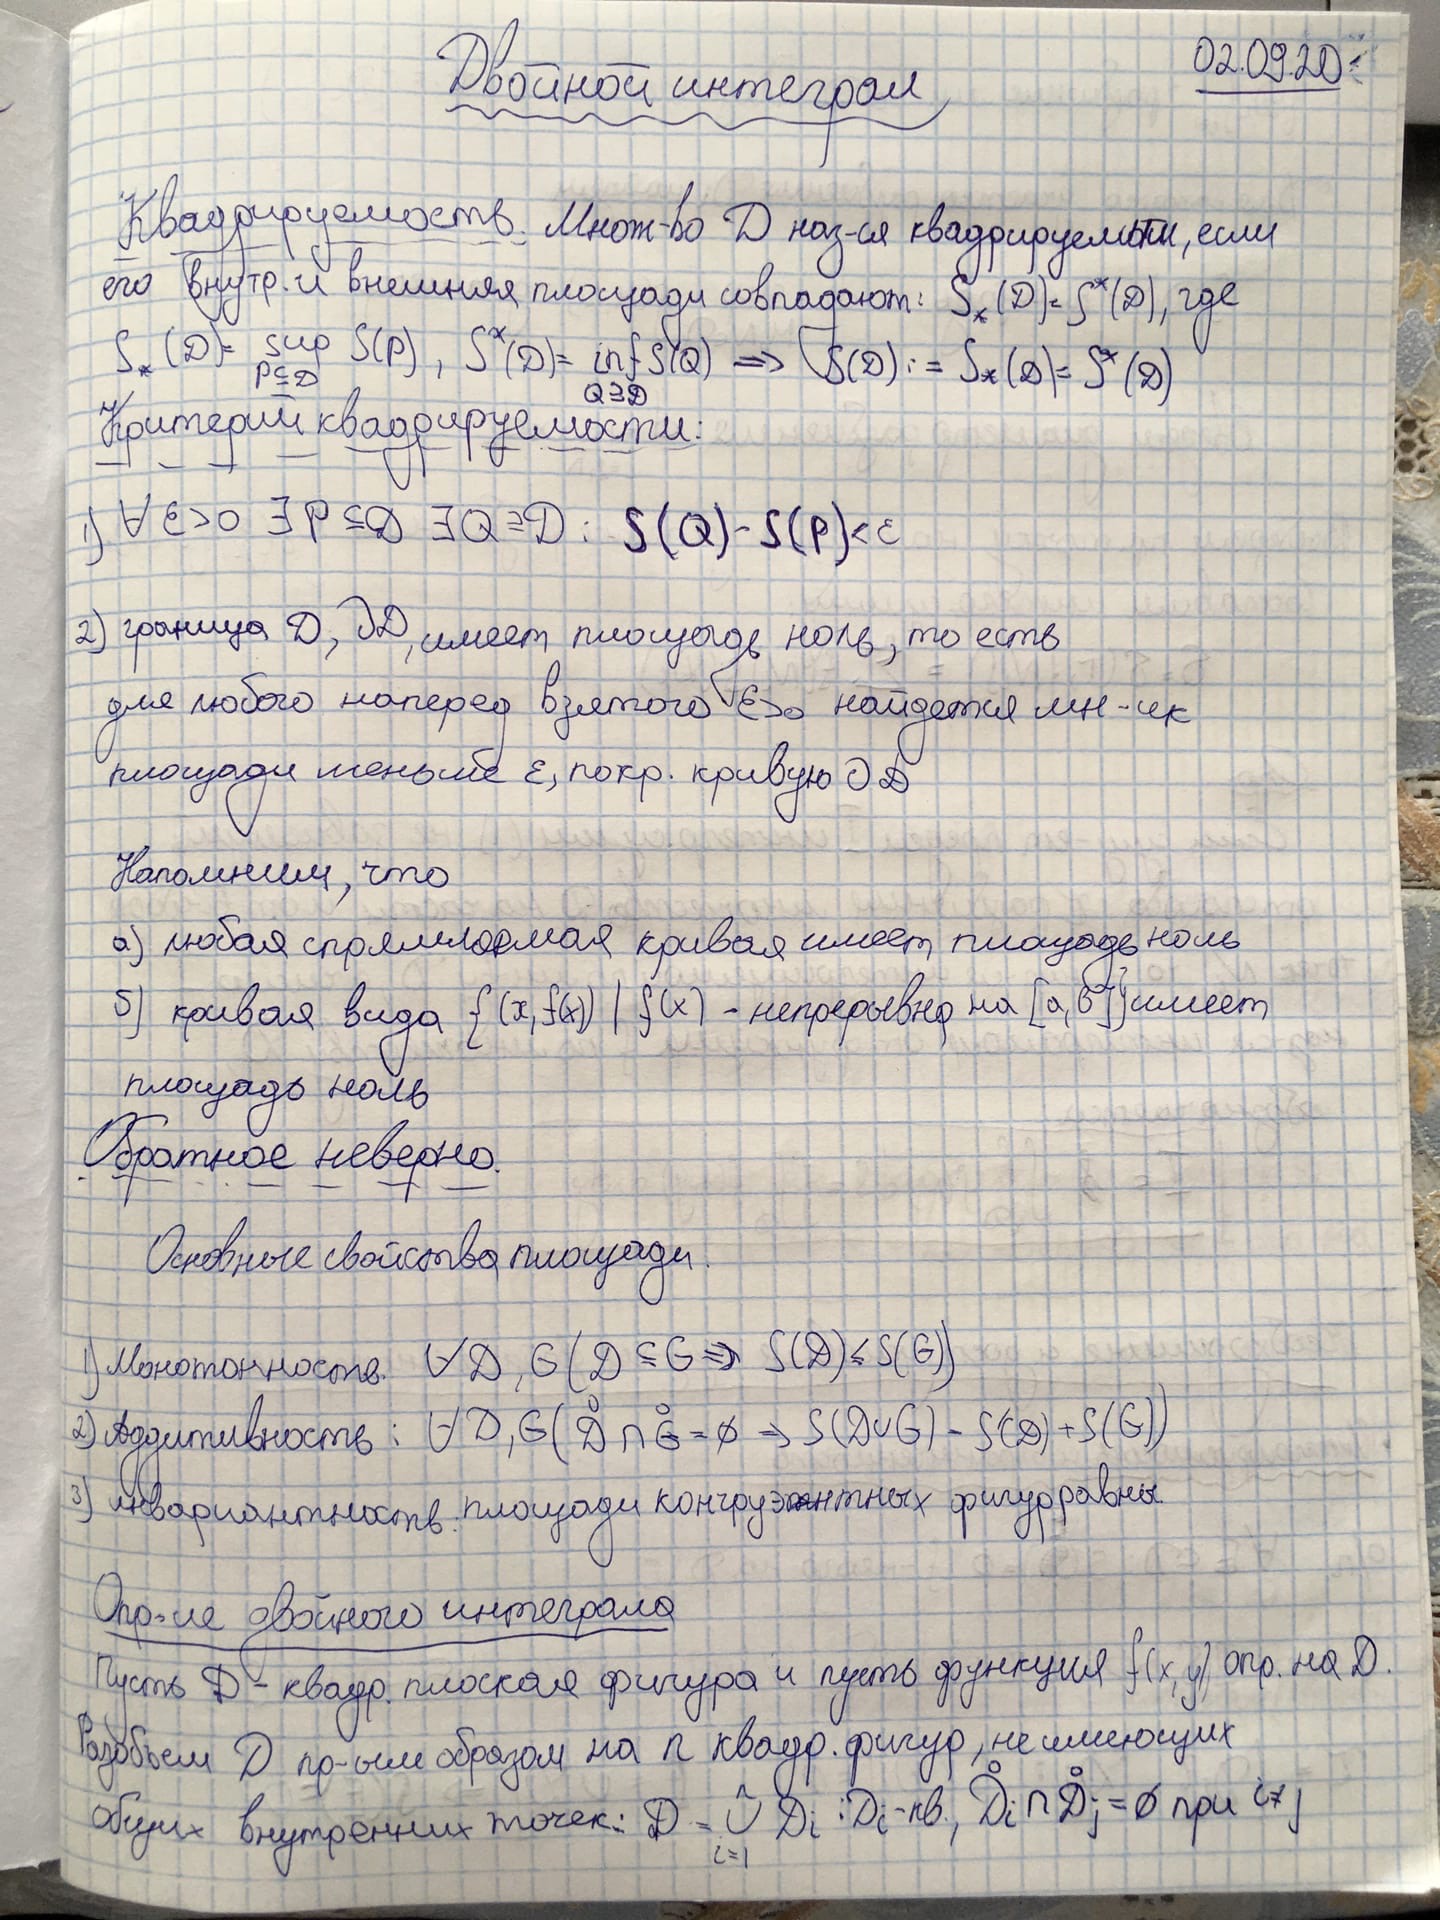 02.09.20
Двойной интеграл
Квадрируемость. Множ-во D наз-ся квадрируемым, если
его внутр. и внешняя площади совпадают: S_*(D) = S^*(D), где
S_*(D) = sup S(P), S^*(D) = inf S(Q) => S(D) := S_*(D) = S^*(D)
P⊆D Q⊇D
Критерий квадрируемости:
1) ∀ε>0 ∃P⊆D ∃Q⊇D: S(Q) - S(P) < ε
2) граница D, ∂D, имеет площадь ноль, то есть
для любого наперед взятого ε>0 найдется мн-ик
площади меньше ε, покр. кривую ∂D
Напомним, что
а) любая спрямляемая кривая имеет площадь ноль
б) кривая вида {(x, f(x)) | f(x) - непрерывна на [a, b]} имеет
площадь ноль
Обратное неверно.
Основные свойства площади.
1) Монотонность. ∀D, G (D ⊆ G => S(D) ≤ S(G))
2) Аддитивность: ∀D, G (D̊ ∩ G̊ = ∅ => S(D∪G) = S(D) + S(G))
3) инвариантность: площади конгруэнтных фигур равны.
Опр-ие двойного интеграла
Пусть D - квадр. плоская фигура и пусть функция f(x, y) опр. на D.
Разобьем D пр-ым образом на n квадр. фигур, не имеющих
общих внутренних точек: D = ∪ Di : Di - кв., D̊i ∩ D̊j = ∅ при i≠j
i=1